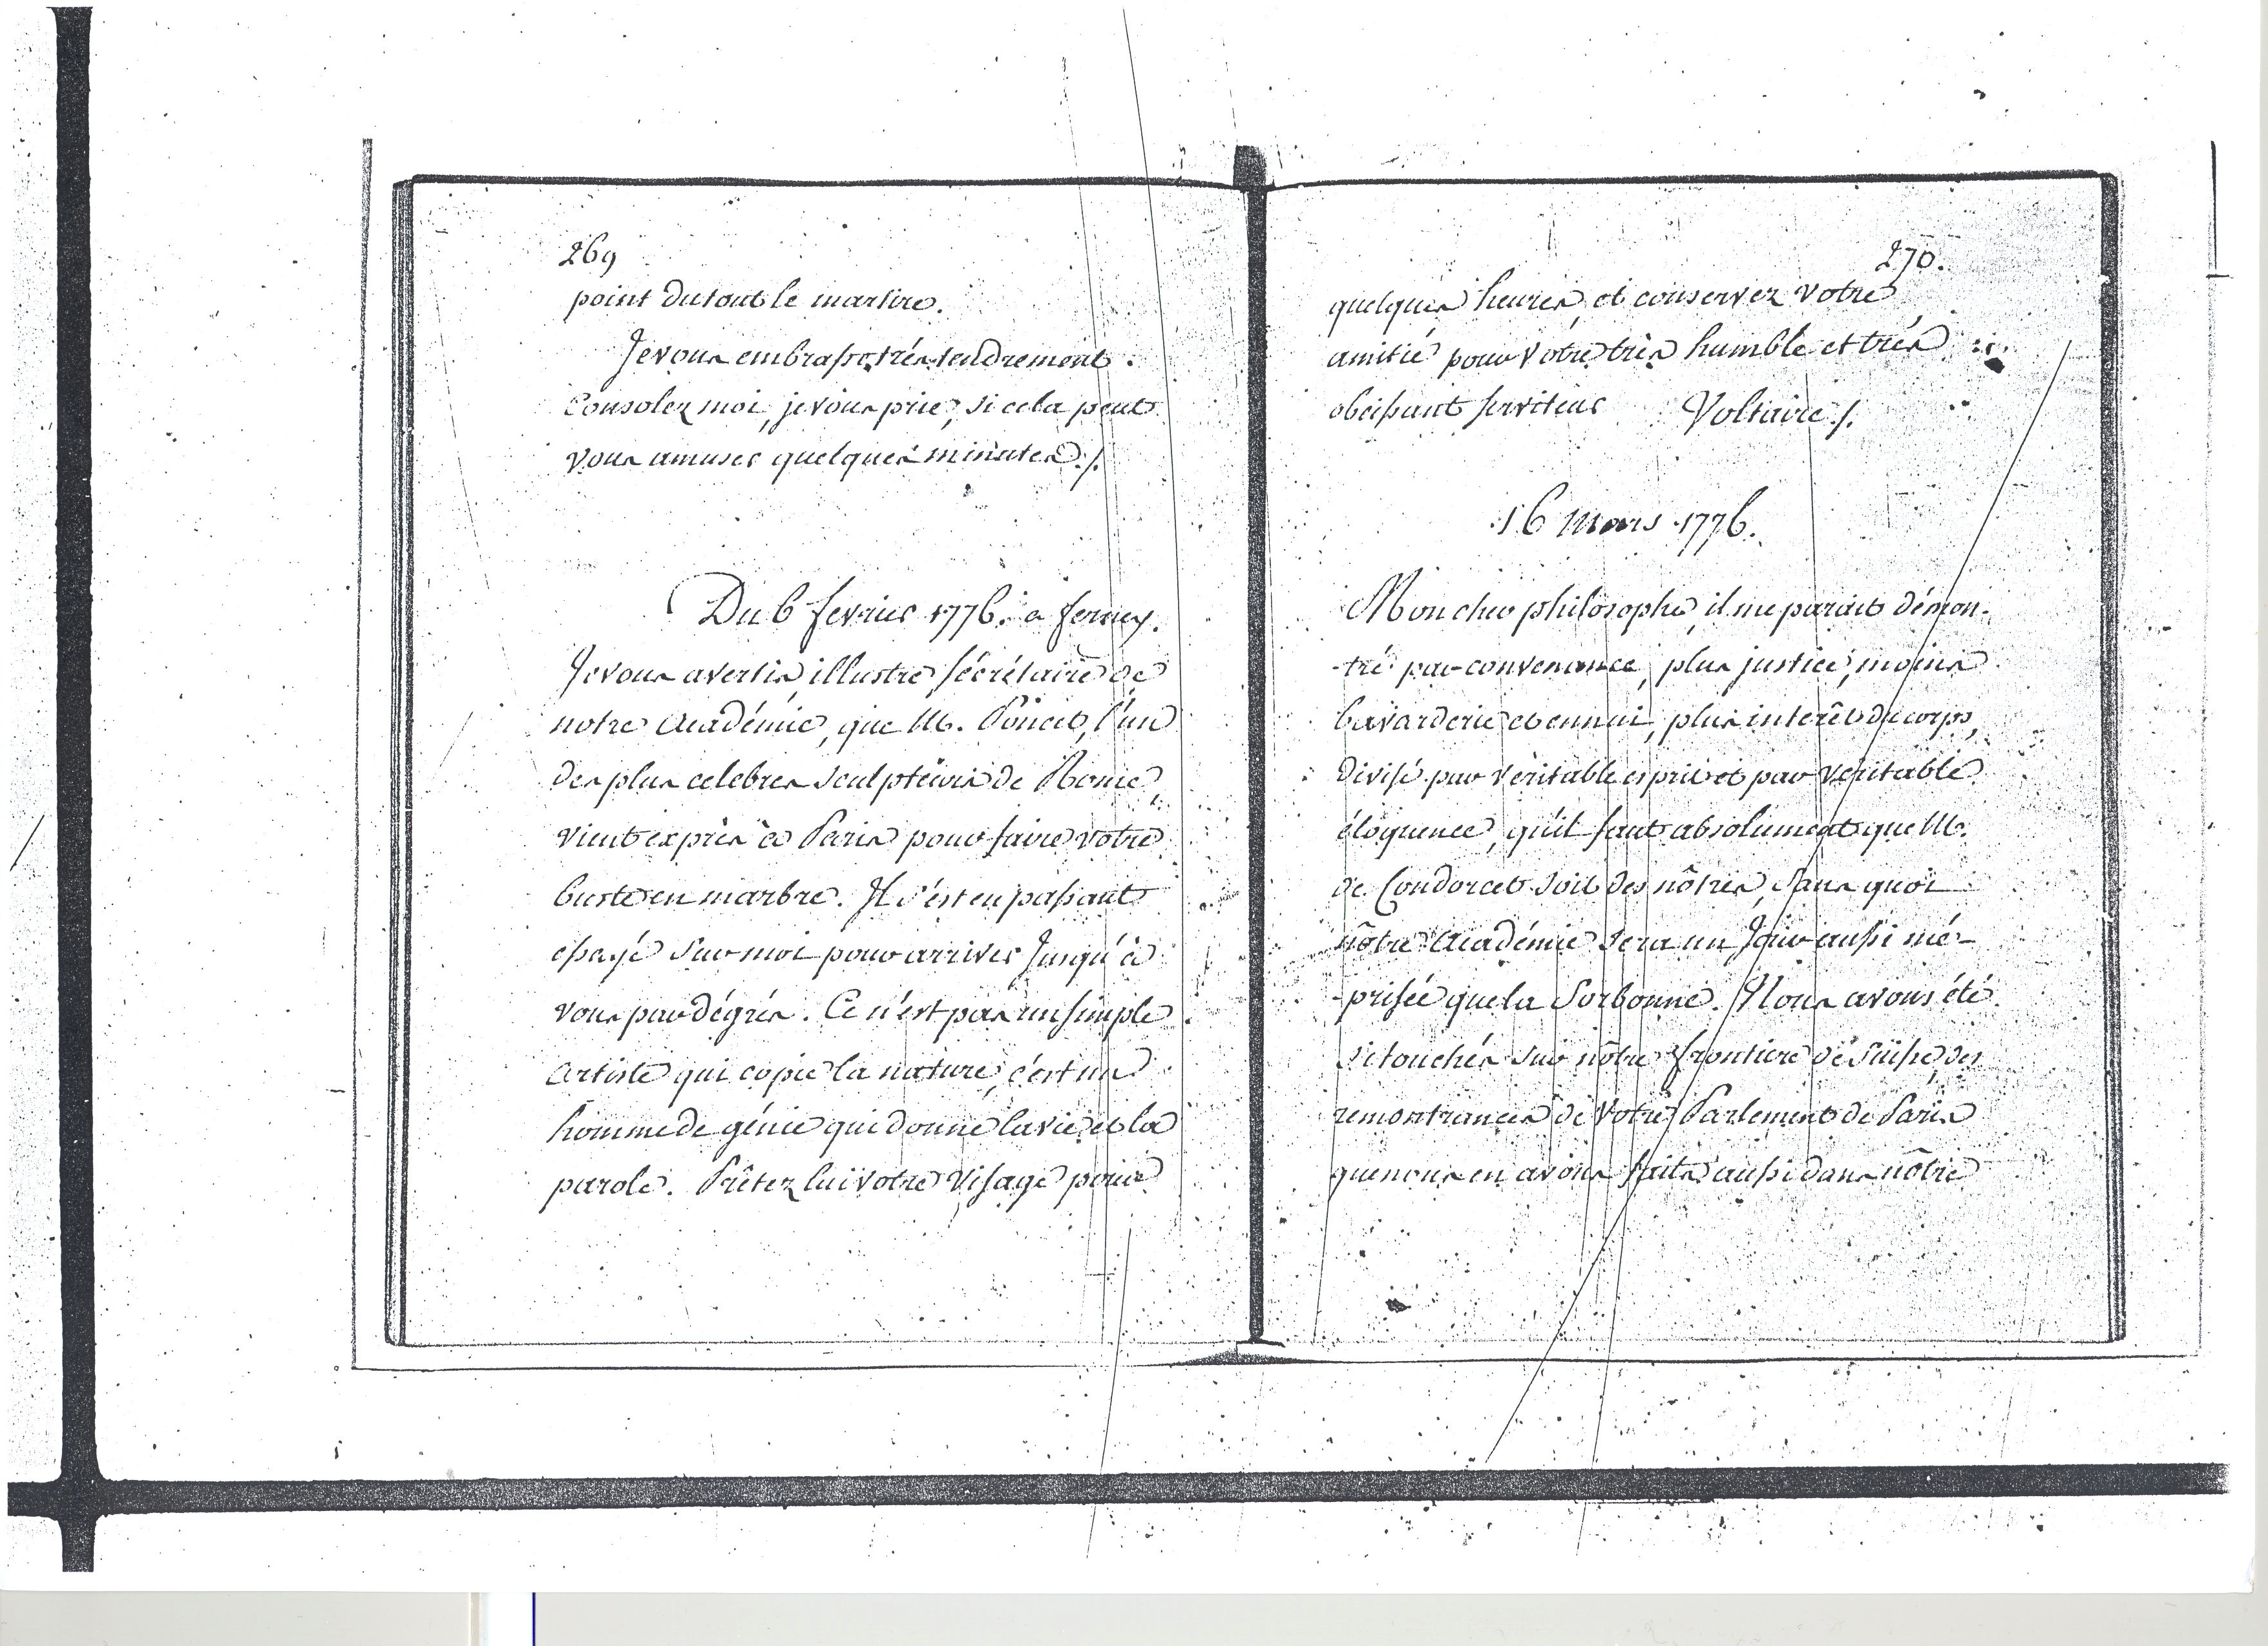 269
point du tout le martire.
Je vous embrasse très tendrement.
Consolez moi, je vous prie, si cela peut
vous amuser quelques minutes ./.
Du 6 fevrier 1776. a ferney.
Je vous avertis illustre sécrétaire de
notre Académie, que M. Poncet, l'un
des plus celebres sculpteurs de Rome,
vient exprès à Paris pour faire votre
buste en marbre. Il s'est en passant
essayé sur moi pour arriver jusqu'à
vous par dégrés. Ce n'est pas un simple
artiste qui copie la nature, c'est un
homme de génie qui donne la vie et la
parole. Prêtez lui votre visage pour
270.
quelques heures, et conservez votre
amitié pour votre très humble et très
obeissant serviteur Voltaire ./.
16 mars 1776.
Mon cher philosophe, il me parait démon-
-tré par convenance, plus justice, moins
bavarderie et ennui, plus interêt du corps,
divisé par véritable esprit et par veritable
éloquence, qu'il faut absolument que M.
de Condorcet soit des nôtres, sans quoi
nôtre Académie sera un jour aussi mé-
-prisée que la Sorbonne. Nous avons été
si touchés sur nôtre frontiere de Suisse, des
remontrances de votre Parlement de Paris
que nous en avons faits aussi dans nôtre